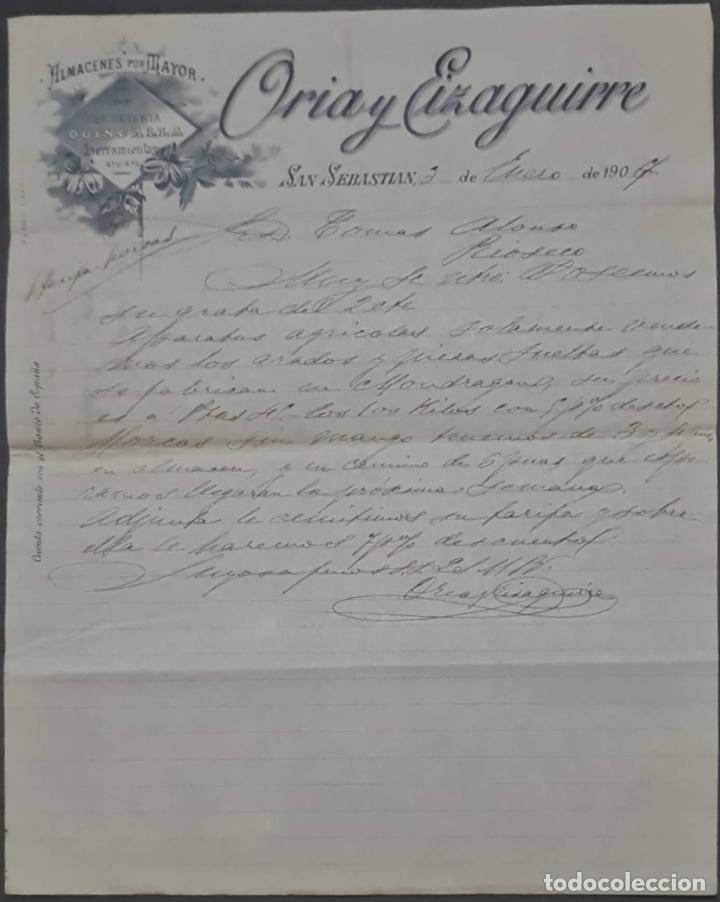 ALMACENES POR MAYOR
DE
FERRETERIA
QUINCALLA
Herramientas
ETC. ETC.
Oria y Eizaguirre
SAN SEBASTIAN, 3 de Enero de 1907
1 tarifa horcas
Sr. D. Tomas Alonso
Rioseco
Muy Sr. ntro: Poseemos
su grata del 2 cte
Aparatos agricolas solamente vende
mos los arados y piezas sueltas que
se fabrican en Mondragon, su precio
es a Ptas los 100 Kilos con 5 p% descto/
Horcas sin mango tenemos de 3 y
en almacen, y en camino de 6 puas que espe
ramos llegaran la próxima semana.
Adjunta le remitimos su tarifa y sobre
ella le haremos 7 p% descuento/
Suyos afmos S.S.
Oria y Eizaguirre
Cuenta corriente con el Banco de España
todocoleccion
todocoleccion.net